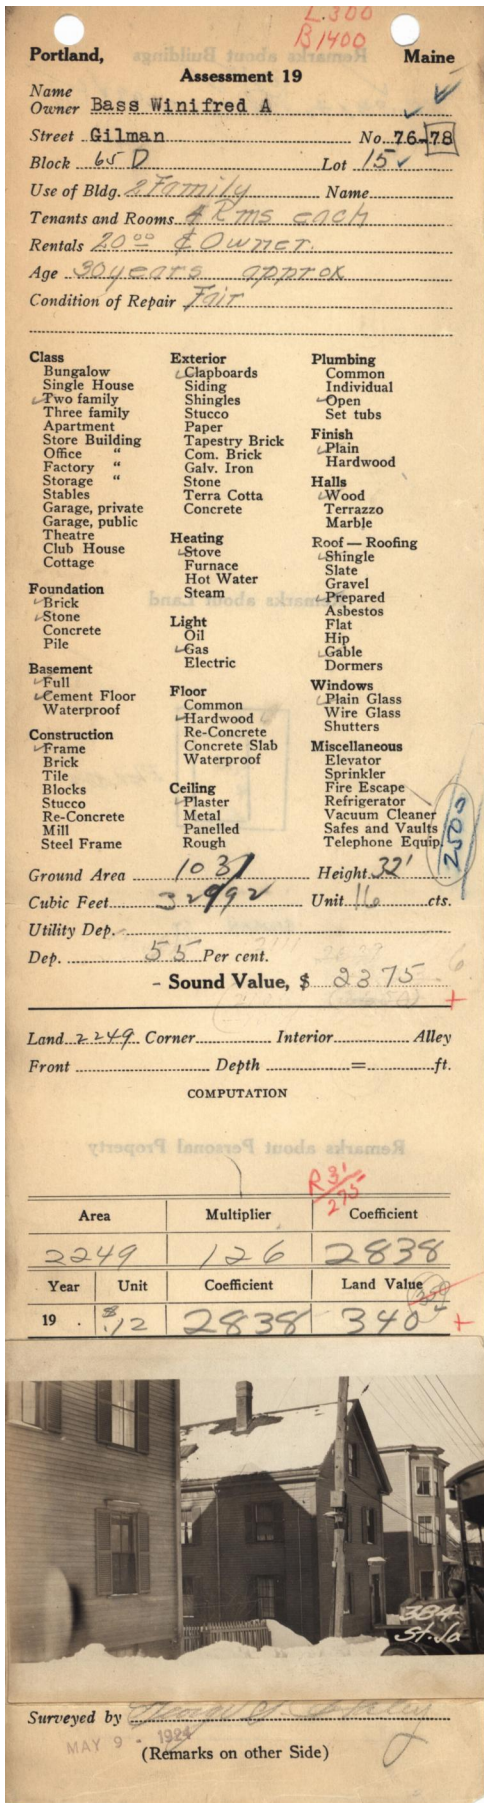 L.300
B1400
Portland, Maine
Assessment 19
Name
Owner Bass Winifred A
Street Gilman No. 76-78
Block 65 D Lot 15
Use of Bldg. 2 Family Name
Tenants and Rooms 4 Rms each
Rentals 20 00 & Owner.
Age 30 years approx
Condition of Repair Fair
Class
Bungalow
Single House
Two family
Three family
Apartment
Store Building
Office "
Factory "
Storage "
Stables
Garage, private
Garage, public
Theatre
Club House
Cottage
Foundation
Brick
Stone
Concrete
Pile
Basement
Full
Cement Floor
Waterproof
Construction
Frame
Brick
Tile
Blocks
Stucco
Re-Concrete
Mill
Steel Frame
Exterior
Clapboards
Siding
Shingles
Stucco
Paper
Tapestry Brick
Com. Brick
Galv. Iron
Stone
Terra Cotta
Concrete
Heating
Stove
Furnace
Hot Water
Steam
Light
Oil
Gas
Electric
Floor
Common
Hardwood
Re-Concrete
Concrete Slab
Waterproof
Ceiling
Plaster
Metal
Panelled
Rough
Plumbing
Common
Individual
Open
Set tubs
Finish
Plain
Hardwood
Halls
Wood
Terrazzo
Marble
Roof — Roofing
Shingle
Slate
Gravel
Prepared
Asbestos
Flat
Hip
Gable
Dormers
Windows
Plain Glass
Wire Glass
Shutters
Miscellaneous
Elevator
Sprinkler
Fire Escape
Refrigerator
Vacuum Cleaner
Safes and Vaults
Telephone Equip.
2500
Ground Area 1031 Height 32'
Cubic Feet 32992 Unit 16 cts.
Utility Dep.
Dep. 55 Per cent.
- Sound Value, $ 2375
Land 2249 Corner Interior Alley
Front Depth = ft.
COMPUTATION
R 31
275
Area Multiplier Coefficient
2249 126 2838
Year Unit Coefficient Land Value
19 . $.12 2838 340
384
St. Jo
Surveyed by
MAY 9 - 1924
(Remarks on other Side)